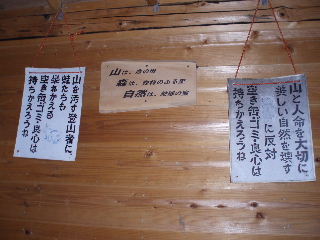 山と人命を大切に
美しい自然を壊す
に反対
空き缶ゴミ・良心は
持ちかえろうね
山は、恋の母
森は、
自然は、地球の宝
山を汚す登山者に
蛙たちも
呆れかえる
空き缶ゴミ・良心は
持ちかえろうね